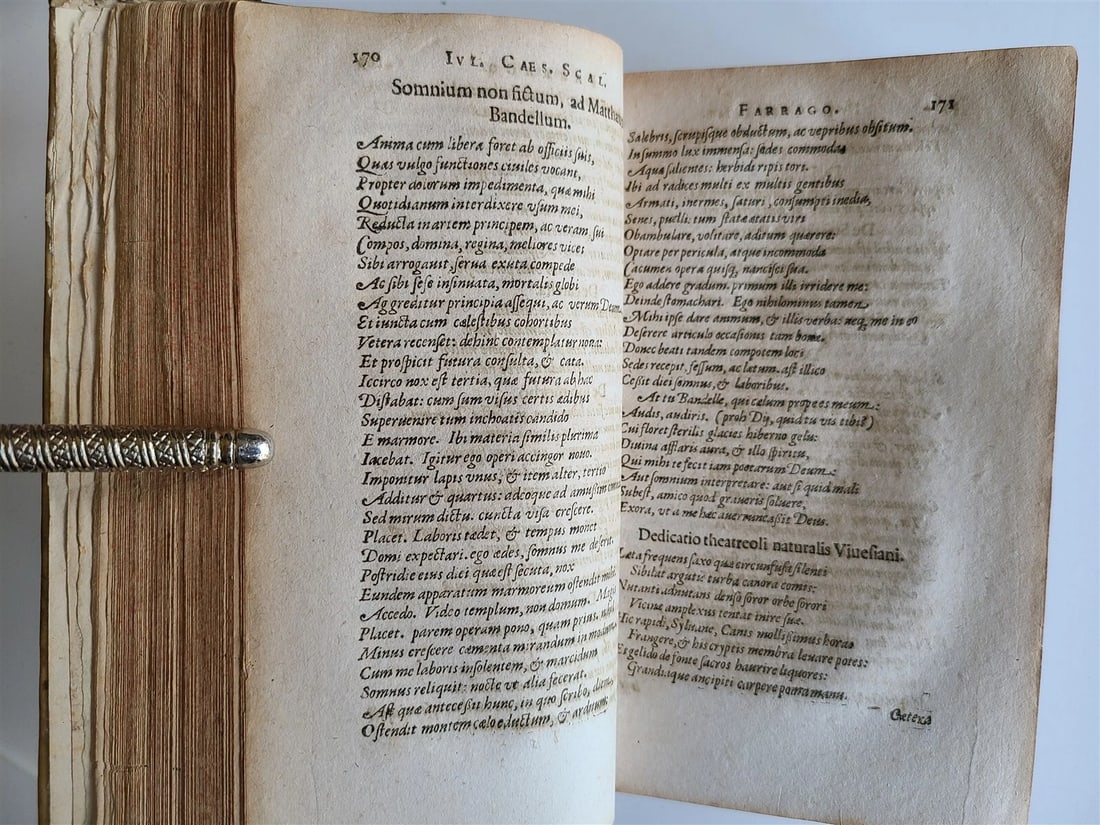 170 IVL. CAES. SCAL.
Somnium non fictum, ad Matthæum
Bandellum.
Anima cum libera foret ab officiis suis,
Quas vulgo functiones ciuiles vocant,
Propter dolorum impedimenta, quæ mihi
Quotidianum interdixere vsum mei,
Reducta in artem principem, ac veram sui
Compos, domina, regina, meliores vices
Sibi arrogauit, serua exuta compede
Ac sibi sese insinuata, mortalis globi
Aggreditur principia assequi, ac verum Deum.
Et iuncta cum cælestibus cohortibus
Vetera recenset: dehinc contemplatur noua:
Et prospicit futura consulta, & cata.
Iccirco nox est tertia, quæ futura ab hac
Distabat: cum sum visus certis ædibus
Superuenire tum inchoatis candido
E marmore. Ibi materia similis plurima
Iacebat. Igitur ego operi accingor nouo.
Imponitur lapis vnus, & item alter, tertio
Additur & quartus: adeoque ad amussim
Sed mirum dictu. cuncta visa crescere.
Placet. Laboris tædet, & tempus monet
Domi expectari. ego ædes, somnus me deserit.
Postridie eius diei quæ est secuta, nox
Eundem apparatum marmoreum ostendit mihi.
Accedo. Video templum, non domum.
Placet. parem operam pono, quam prius.
Minus crescere cæmenta mirandum in modum
Cum me laboris insolentem, & marcidum
Somnus reliquit: nocte vt alia fecerat.
Ast quæ antecessit hunc, in quo scribo, diem
Ostendit montem cælo eductum, & arduum:
FARRAGO. 171
Salebris, scrupisque obductum, ac vepribus obsitum.
In summo lux immensa: sedes commodæ
Aquæ salientes: herbidi ripis tori.
Ibi ad radices multi ex multis gentibus
Armati, inermes, saturi, consumpti inedia,
Senes, puelli: tum statæ ætatis viri
Obambulare, volitare, aditum quærere:
Optare per pericula, atque incommoda
Cacumen opera quisq; nancisci sua.
Ego addere gradum. primum illi irridere me:
Deinde stomachari. Ego nihilominus tamen
Mihi ipse dare animum, & illis verba: neq; me in eo
Deserere articulo occasionis tam bonæ.
Donec beati tandem compotem loci
Sedes recepit fessum, ac lætum. ast illico
Cessit diei somnus, & laboribus.
At tu Bandelle, qui cælum prope es meum:
Audis, audiris. (proh Dij, quid tu vis tibi?)
Cui floret sterilis glacies hiberno gelu:
Diuina afflaris aura, & illo spiritu,
Qui mihi te fecit iam poetarum Deum:
Aut somnium interpretare: aut si quid mali
Subest, amico quod graueris soluere,
Exora, vt a me hæc auerruncassit Deus.
Dedicatio theatreoli naturalis Viuesiani.
Læta frequens saxo quæ circunfusa silenti
Sibilat argutæ turba canora comis:
Nutanti adnutans denso soror orbe sorori
Vicinæ amplexus tentat inire suæ.
Hic rapidi, Syluane, Canis mollissimus horas
Frangere, & his cryptis membra leuare potes:
Et gelido de fonte sacros haurire liquores:
Grandiaque ancipiti carpere poma manu.
Cetera